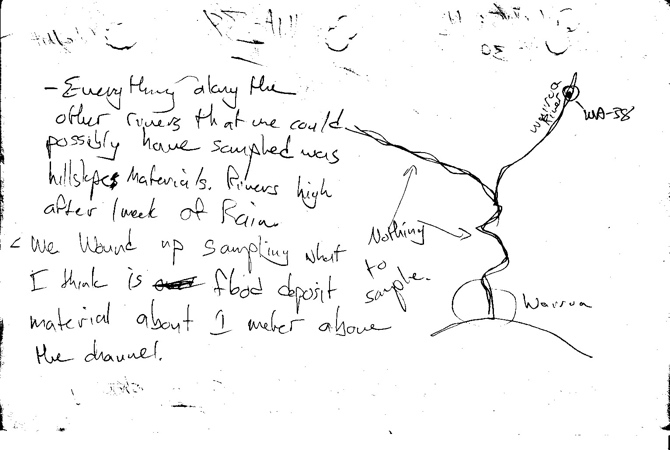 - Everything along the
other rivers that we could
possibly have sampled was
hillslope materials. Rivers high
after 1 week of Rain.
- We Wound up sampling what
I think is flood deposit
material about 1 meter above
the channel.
River
WA-38
Nothing
to
sample.